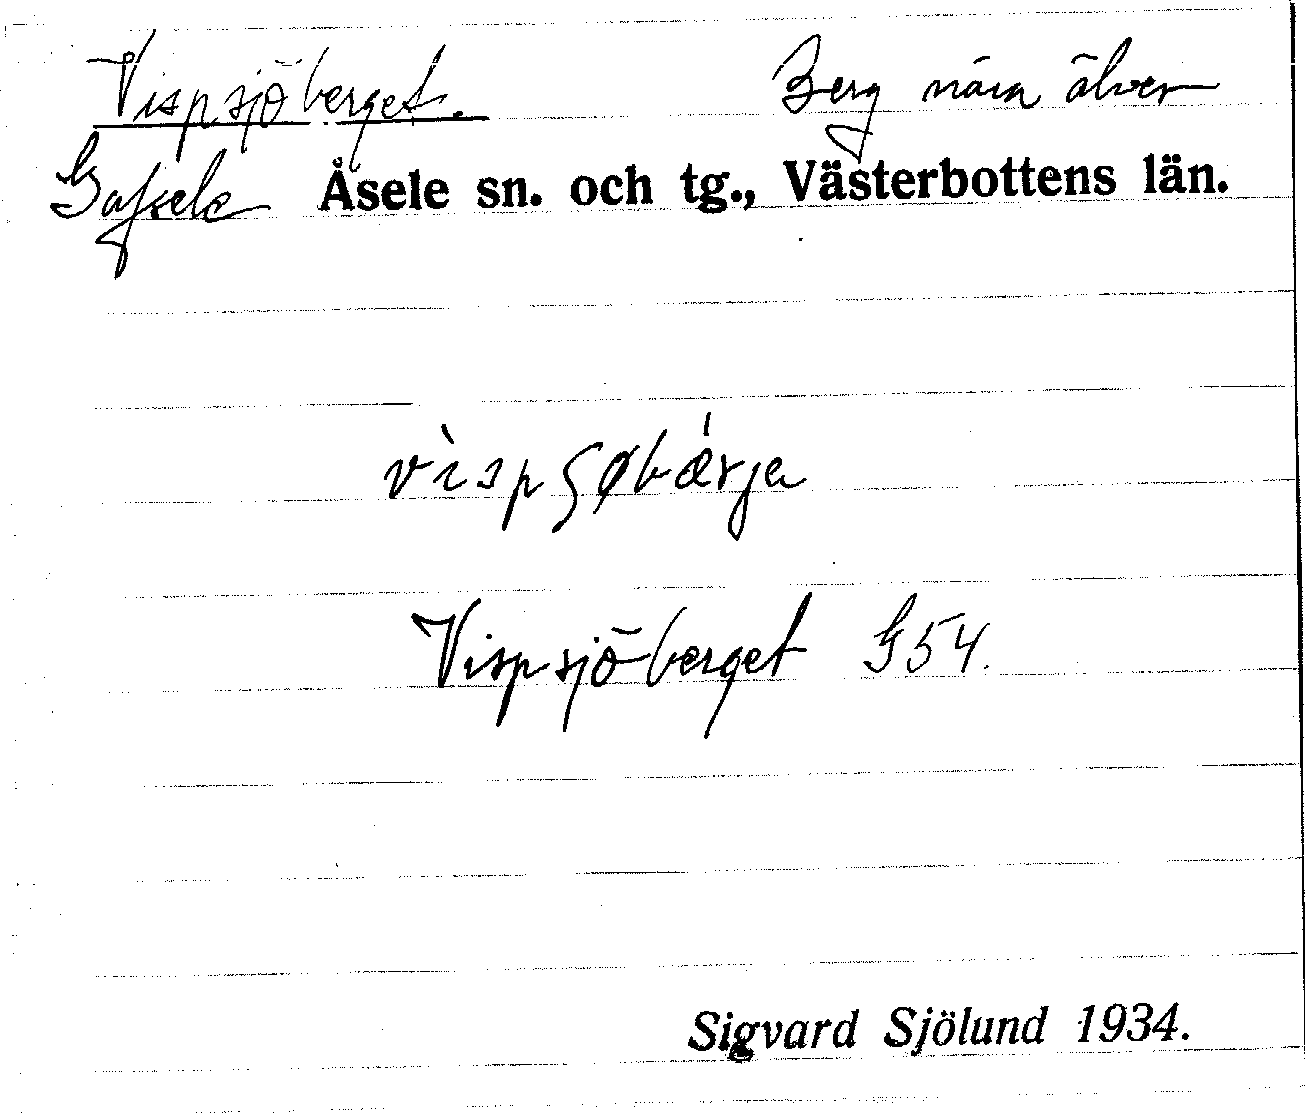 Vispsjöberget. Berg nära älven
Gafsele Åsele sn. och tg., Västerbottens län.
vìspʂøbǽrja
Vispsjöberget G54.
Sigvard Sjölund 1934.